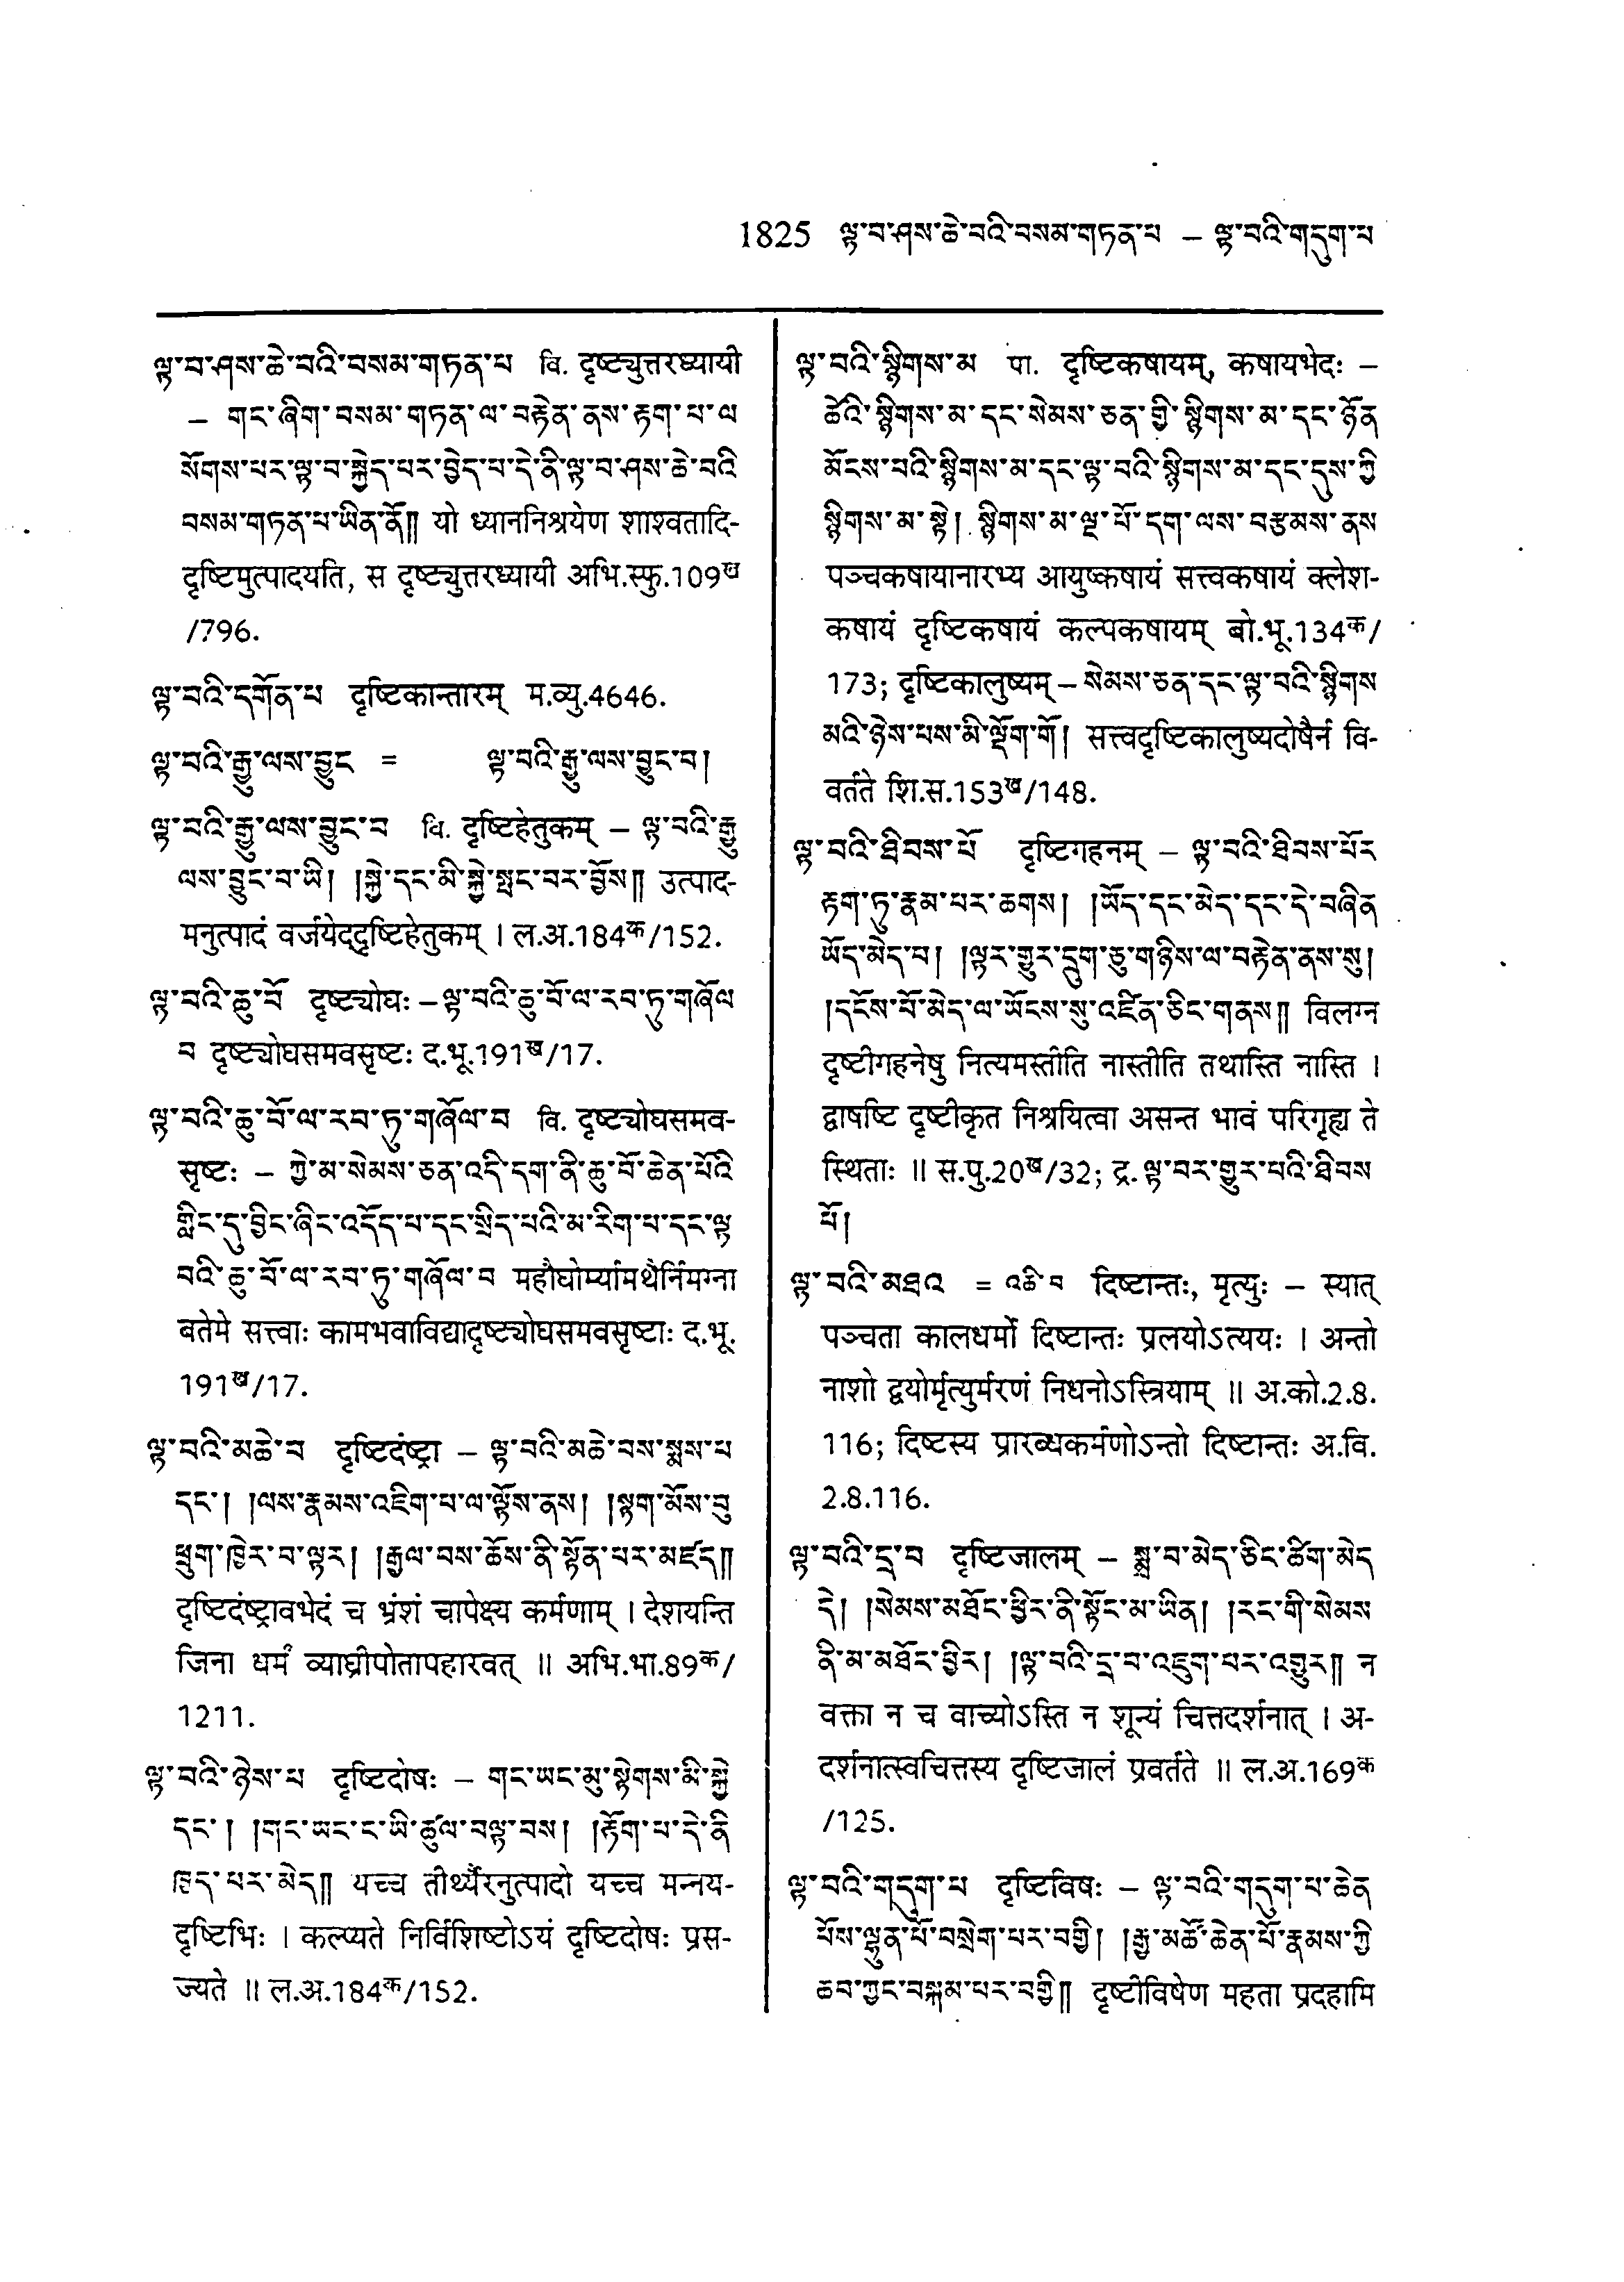 1825 ལྟ་བ་ཤས་ཆེ་བའི་བསམ་གཏན་པ – ལྟ་བའི་གདུག་པ
ལྟ་བ་ཤས་ཆེ་བའི་བསམ་གཏན་པ वि. दृष्ट्युत्तरध्यायी
– གང་ཞིག་བསམ་གཏན་ལ་བརྟེན་ནས་རྟག་པ་ལ
སོགས་པར་ལྟ་བ་སྐྱེད་པར་བྱེད་པ་དེ་ནི་ལྟ་བ་ཤས་ཆེ་བའི
བསམ་གཏན་པ་ཡིན་ནོ༎ यो ध्याननिश्रयेण शाश्वतादि-
दृष्टिमुत्पादयति, स दृष्ट्युत्तरध्यायी अभि.स्फु.109ख
/796.
ལྟ་བའི་དགོན་པ दृष्टिकान्तारम् म.व्यु.4646.
ལྟ་བའི་རྒྱུ་ལས་བྱུང = ལྟ་བའི་རྒྱུ་ལས་བྱུང་བ།
ལྟ་བའི་རྒྱུ་ལས་བྱུང་བ वि. दृष्टिहेतुकम् – ལྟ་བའི་རྒྱུ
ལས་བྱུང་བ་ཡི། །སྐྱེ་དང་མི་སྐྱེ་སྤང་བར་བྱོས༎ उत्पाद-
मनुत्पादं वर्जयेद्दृष्टिहेतुकम् । ल.अ.184क/152.
ལྟ་བའི་ཆུ་བོ दृष्ट्योघः – ལྟ་བའི་ཆུ་བོ་ལ་རབ་ཏུ་གཞོལ
བ दृष्ट्योघसमवसृष्टः द.भू.191ख/17.
ལྟ་བའི་ཆུ་བོ་ལ་རབ་ཏུ་གཞོལ་བ वि. दृष्ट्योघसमव-
सृष्टः – ཀྱེ་མ་སེམས་ཅན་འདི་དག་ནི་ཆུ་བོ་ཆེན་པོའི
གླིང་དུ་བྱིང་ཞིང་འདོད་པ་དང་སྲིད་པའི་མ་རིག་པ་དང་ལྟ
བའི་ཆུ་བོ་ལ་རབ་ཏུ་གཞོལ་བ महौघोर्म्यामथैर्निमग्ना
बतेमे सत्त्वाः कामभवाविद्यादृष्ट्योघसमवसृष्टाः द.भू.
191ख/17.
ལྟ་བའི་མཆེ་བ दृष्टिदंष्ट्रा – ལྟ་བའི་མཆེ་བས་སྨས་པ
དང་། །ལས་རྣམས་འཇིག་པ་ལ་ལྟོས་ནས། །སྟག་མོས་བུ
ཕྲུག་ཁྱེར་བ་ལྟར། །རྒྱལ་བས་ཆོས་ནི་སྟོན་པར་མཛད༎
दृष्टिदंष्ट्रावभेदं च भ्रंशं चापेक्ष्य कर्मणाम् । देशयन्ति
जिना धर्मं व्याघ्रीपोतापहारवत् ॥ अभि.भा.89क/
1211.
ལྟ་བའི་ཉེས་པ दृष्टिदोषः – གང་ཡང་མུ་སྟེགས་མི་སྐྱེ
དང་། །གང་ཡང་ང་ཡི་ཚུལ་བལྟ་བས། །རྟོག་པ་དེ་ནི
ཁྱད་པར་མེད༎ यच्च तीर्थ्यैरनुत्पादो यच्च मन्नय-
दृष्टिभिः । कल्प्यते निर्विशिष्टोऽयं दृष्टिदोषः प्रस-
ज्यते ॥ ल.अ.184क/152.
ལྟ་བའི་སྙིགས་མ पा. दृष्टिकषायम्, कषायभेदः –
ཚེའི་སྙིགས་མ་དང་སེམས་ཅན་གྱི་སྙིགས་མ་དང་ཉོན
མོངས་བའི་སྙིགས་མ་དང་ལྟ་བའི་སྙིགས་མ་དང་དུས་ཀྱི
སྙིགས་མ་སྟེ། སྙིགས་མ་ལྔ་པོ་དག་ལས་བརྩམས་ནས
पञ्चकषायानारभ्य आयुष्कषायं सत्त्वकषायं क्लेश-
कषायं दृष्टिकषायं कल्पकषायम् बो.भू.134क/
173; दृष्टिकालुष्यम् – སེམས་ཅན་དང་ལྟ་བའི་སྙིགས
མའི་ཉེས་པས་མི་ལྡོག་གོ། सत्त्वदृष्टिकालुष्यदोषैर्न वि-
वर्तते शि.स.153ख/148.
ལྟ་བའི་ཐིབས་པོ दृष्टिगहनम् – ལྟ་བའི་ཐིབས་པོར
རྟག་ཏུ་རྣམ་པར་ཆགས། །ཡོད་དང་མེད་དང་དེ་བཞིན
ཡོད་མེད་བ། །ལྟར་གྱུར་དྲུག་ཅུ་གཉིས་ལ་བརྟེན་ནས་སུ།
།དངོས་པོ་མེད་ལ་ཡོངས་སུ་འཛིན་ཅིང་གནས༎ विलग्न
दृष्टीगहनेषु नित्यमस्तीति नास्तीति तथास्ति नास्ति ।
द्वाषष्टि दृष्टीकृत निश्रयित्वा असन्त भावं परिगृह्य ते
स्थिताः ॥ स.पु.20ख/32; द्र. ལྟ་བར་གྱུར་པའི་ཐིབས
པོ།
ལྟ་བའི་མཐའ = འཆི་བ दिष्टान्तः, मृत्युः – स्यात्
पञ्चता कालधर्मो दिष्टान्तः प्रलयोऽत्ययः । अन्तो
नाशो द्वयोर्मृत्युर्मरणं निधनोऽस्त्रियाम् ॥ अ.को.2.8.
116; दिष्टस्य प्रारब्धकर्मणोऽन्तो दिष्टान्तः अ.वि.
2.8.116.
ལྟ་བའི་དྲ་བ दृष्टिजालम् – སྨྲ་བ་མེད་ཅིང་ཚིག་མེད
དེ། །སེམས་མཐོང་ཕྱིར་ནི་སྟོང་མ་ཡིན། །རང་གི་སེམས
ནི་མ་མཐོང་ཕྱིར། །ལྟ་བའི་དྲ་བ་འཇུག་པར་འགྱུར༎ न
वक्ता न च वाच्योऽस्ति न शून्यं चित्तदर्शनात् । अ-
दर्शनात्स्वचित्तस्य दृष्टिजालं प्रवर्तते ॥ ल.अ.169क
/125.
ལྟ་བའི་གདུག་པ दृष्टिविषः – ལྟ་བའི་གདུག་པ་ཆེན
པོས་ལྷུན་པོ་བསྲེག་པར་བགྱི། །རྒྱ་མཚོ་ཆེན་པོ་རྣམས་ཀྱི
ཆབ་ཀྱང་བསྐམ་པར་བགྱི༎ दृष्टीविषेण महता प्रदहामि